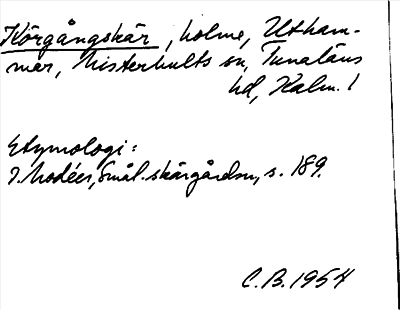 Körgångskär, holme, Utham-
mar, Misterhults sn, Tunaläns
hd, Kalm. l
Etymologi:
I. Modéer, Smål. skärgårdsn, s. 189.
C.B. 1954